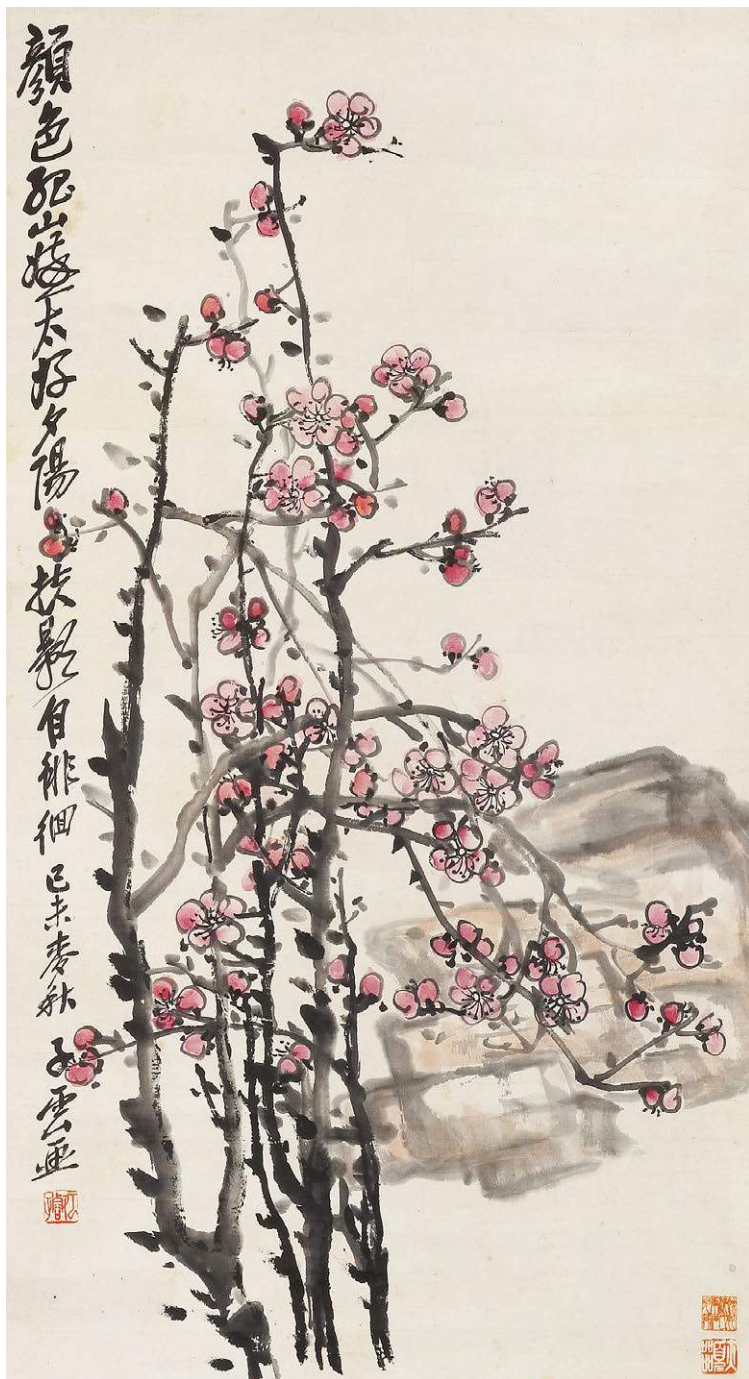 顏色孤山嫌太好夕陽扶影自徘徊 己未麥秋 子雲畫